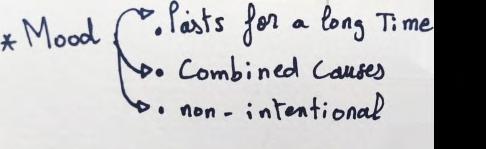 . Lasts for a long Time
* Mood
• Combined Causes
• non-intentional